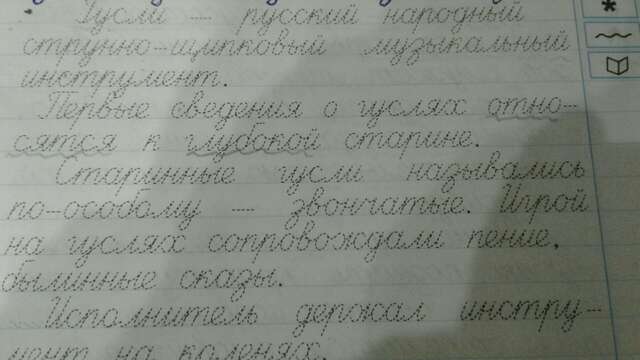 Гусли — русский народный
струнно-щипковый музыкальный
инструмент.
Первые сведения о гуслях отно-
сятся к глубокой старине.
Старинные гусли назывались
по-особому — звончатые. Игрой
на гуслях сопровождали пение,
былинные сказы.
Исполнитель держал инстру-
мент на коленях.